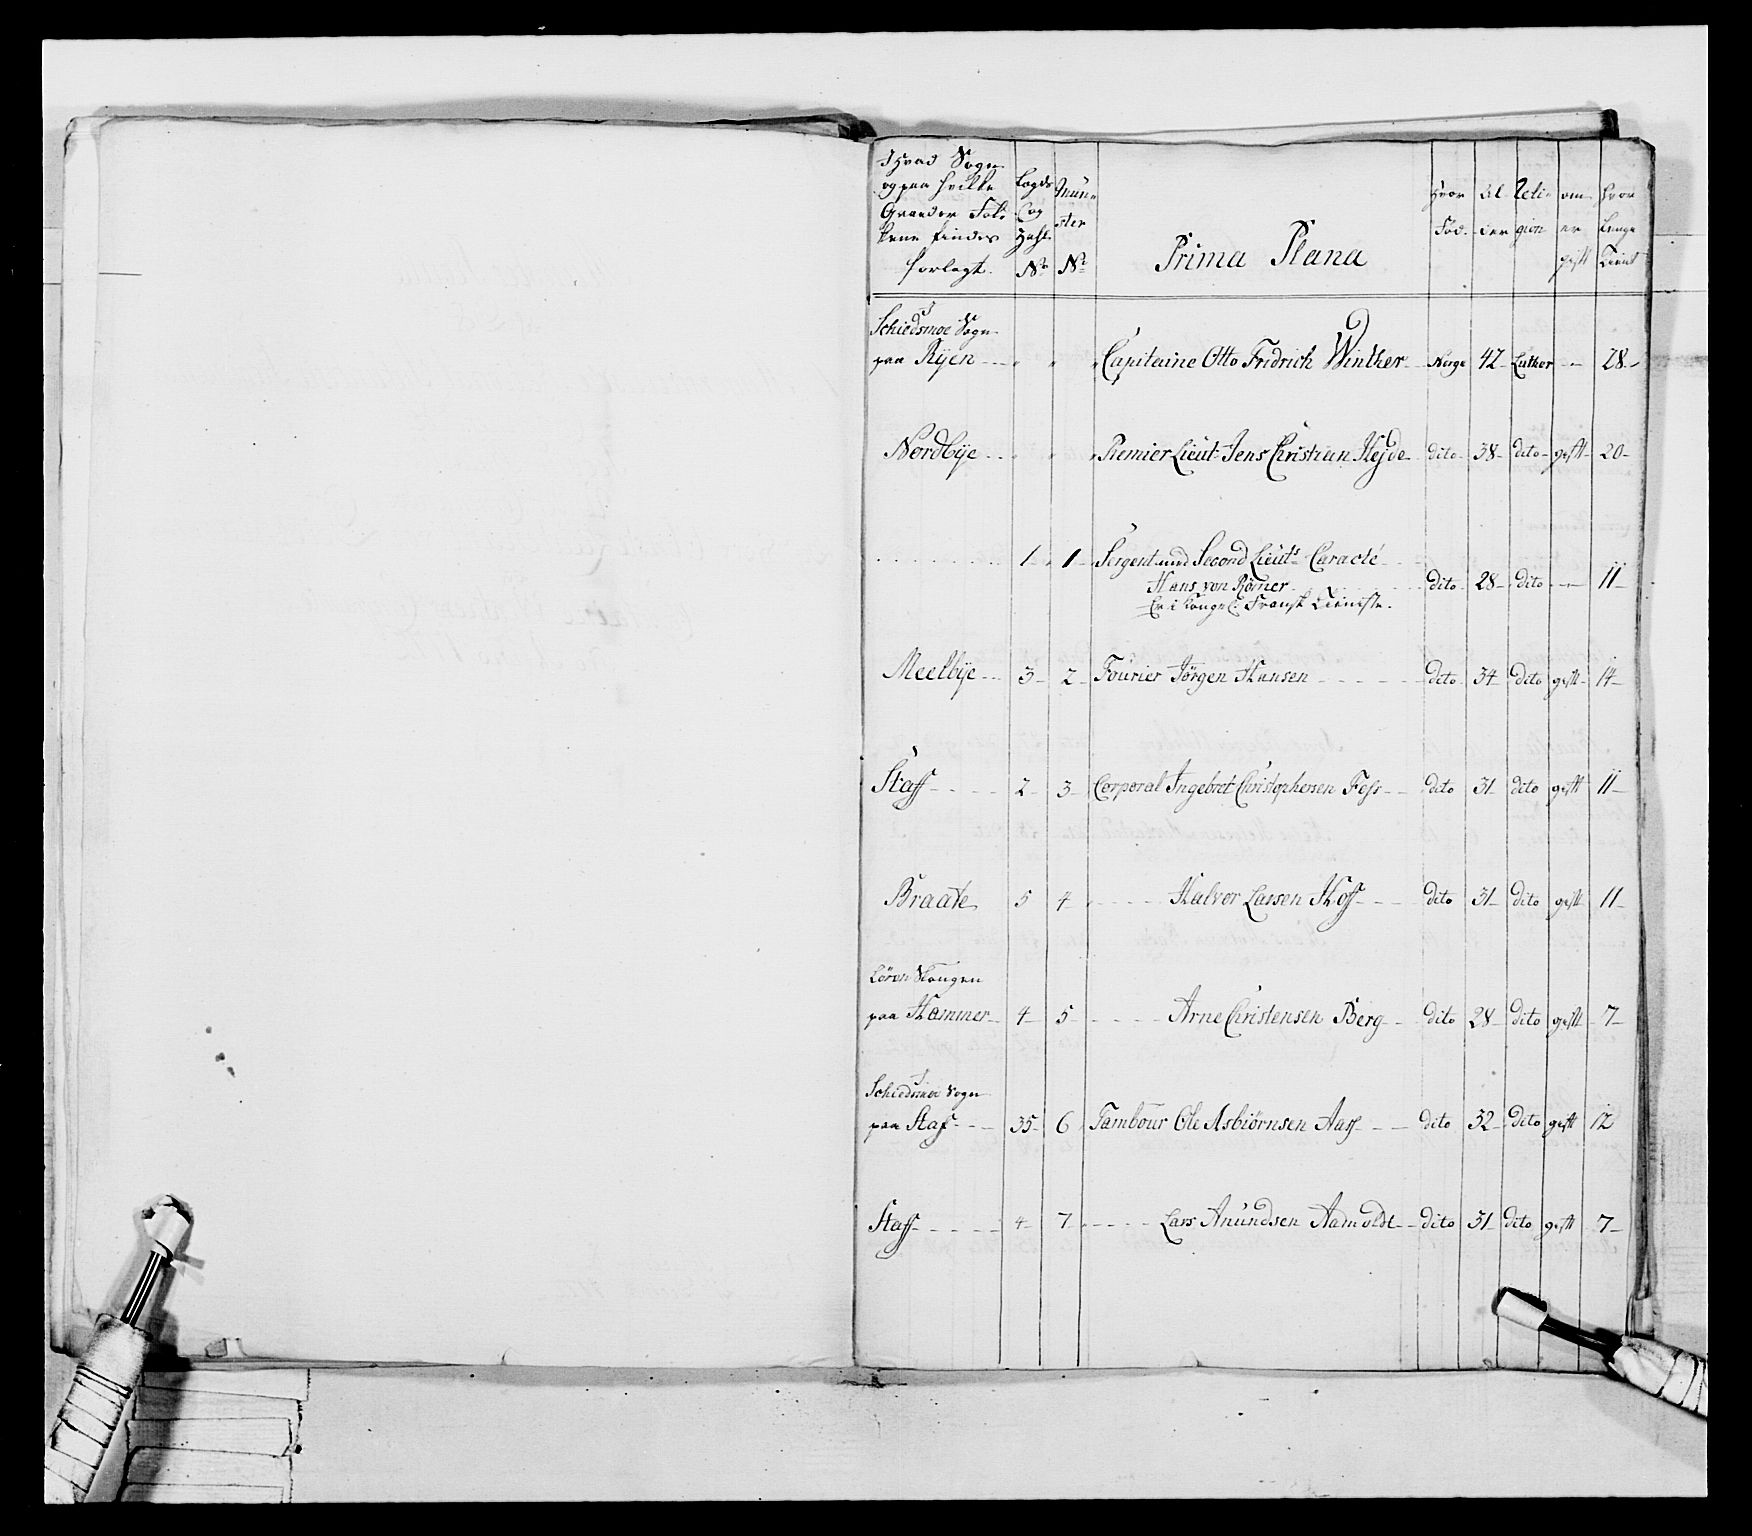 I Hvad Sogn
og paa hvilke
Gaarder Fol-
kene findes
forlagt.
Lægds
og
Zahl
No
Mün-
ster
No
Prima Plana
Hvor
Fød.
Al-
der
Reli-
gion
om
er
gift
Hvor
Lenge
Tient
Schiedsmoe Sogn
paa Ryen - - " " " Capitaine Otto Fridrich Winther - Norge 42 Luther - - 28 -
Nordbÿe - - " " " Premier Lieut: Jens Christian Hejde dito - 38 - dito - gift - 20 -
1 - 1 - Sergent und Second Lieuts Caracté
Hans von Rømer - dito - 28 - dito - - 11 -
Er i Konge: Fransk Tieniste.
Meelbÿe - - 3 - 2 - Fourier Jørgen Hansen - - - dito - 34 - dito gift - 14 -
Staff - - - 2 - 3 - Corporal Ingebret Christophersen Fess - - dito 31 - dito gift 11 -
Braate 5 4 - - - Halvor Larsen Hoff - - - dito 31 - dito gift 11 -
Lørenskougen
paa Hammer - 4 - 5 - - - Arne Christensen Berg - dito 28 - dito gift - 7 -
Schiedsmoe Sogn
paa Staf - - - 35 - 6 Tambour Ole Asbiörnsen Aass - - dito 32 - dito gift 12
Staff - - - - 4 - 7 - - - Lars Anundsen Aamoldt - - dito 31 dito gift 7 -